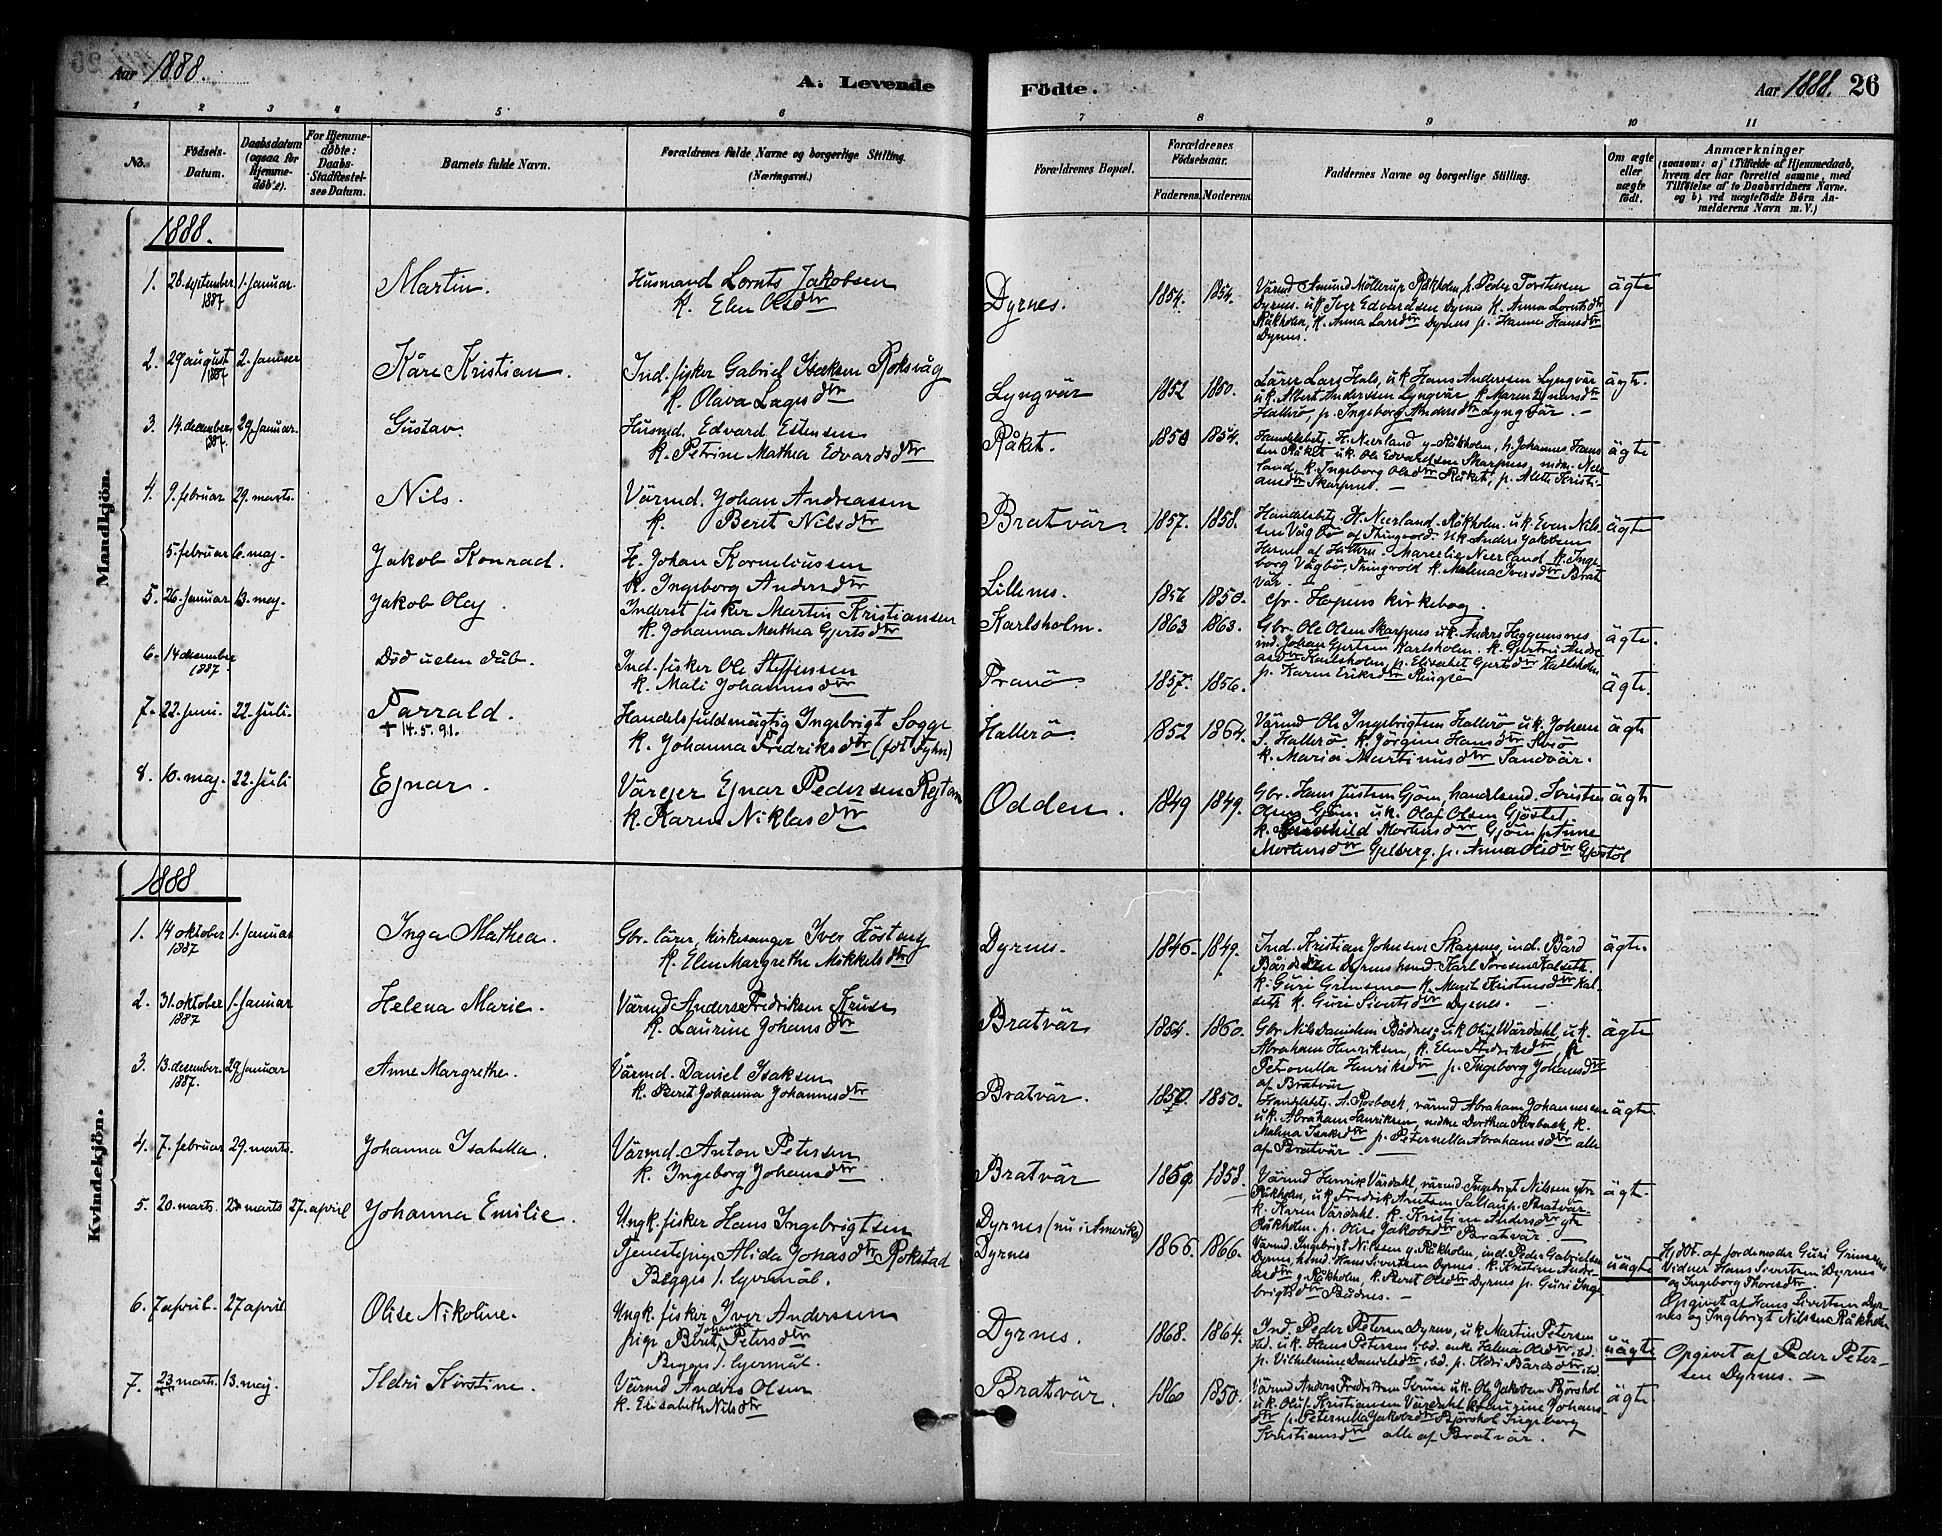 Aar 1888.
A. Levende
Födte.
Aar 1888. 26
1 2 3 4 5 6 7 8 9 10 11
No.
Födsels-
Datum.
Daabsdatum
(ogsaa for
Hjemme-
döbte).
For Hjemme-
döbte:
Daabs-
Stadfæstel-
ses Datum.
Barnets fulde Navn.
Forældrenes fulde Navne og borgerlige Stilling.
(Næringsvei.)
Forældrenes Bopæl.
Forældrenes
Födselsaar.
Faderens. Moderens.
Faddernes Navne og borgerlige Stilling.
Om ægte
eller
uægte
födt.
Anmærkninger
(saasom: a) i Tilfælde af Hjemmedaab,
hvem der har forrettet samme, med
Tilföielse af to Daabsvidners Navne.
og b) ved uægtefödte Börn An-
melderens Navn m. V.)
Mandkjön.
1888.
1. 28. september 1887 1. januar. Martin. Husmand Lornts Jakobsen
k. Elen Olsdtr
Dyrnes. 1854. 1854. ägte
Dyrnes. u.k Iver Edvardsen Dyrnes k. Anna Lorntsdtr
Råkholm, k. Anna Larsdtr Dyrnes p. Hanna Hansdtr
Dyrnes.
2. 29 august 1887 2. januar Kåre Kristian. Ind. fisker Gabriel Isaksen Roksvåg
k. Olava Lagesdtr
Lyngvär 1852 1850. ägte.
Lärer Lars Hals, u.k Hans Anderssen Lyngvär
u.k. Albert Anderssen Lyngvär k. Maren
Hallerö, p. Ingeborg Andersdtr Lyngvär.
3. 14. december 1887. 29. januar. Gustav. Husmd. Edvard Estensen
k. Petrine Mathea Edvardsdtr
Råket. 1850 1854. ägte
Handelsbetj. H. Neerland g. Råkholm, h. Johannes Hans
sen Råket u.k. Ole Edvardsen Skarpnes, mdm. Neer
land, k. Ingeborg Olsdtr Råket, p. Mette Kristi-
ansdtr Skarpnes.
4. 9. februar. 29. marts. Nils. Värmd. Johan Andreassen
k. Berit Nilsdtr
Bratvär. 1857. 1858. ägte
Handelsbetj. H. Neerland. Råkholm. u.k. Even Nils-
sen Vågbö af Thingvold. Uk Anders Jakobsen
Marcelie Neerland k. Inge-
borg Vågbö, Thingvold k. Malena Iversdtr Brat
vär.
5. februar 6. maj. Jakob Konrad. H. Johan Korneliussen
k. Ingeborg Andersdtr
Lillenes. 1856 1850. cfr. Hopens kirkebog.
5. 26. januar 13. maj. Jakob Olaj. Inderst fisker Martin Kristiansen
k. Johanna Mathea Gjertsdtr
Karlsholm. 1863 1863. ägte.
Gbr. Ole Olsen Skarpnes u.k. Anders Heggemsnes
ind. Johan Gjertsen Karlsholm. k. Gjertru Andre
asdtr Karlsholm, p. Elisabet Gjertsdtr Karlsholm
p. Karen Eriksdtr Ringsö
6. 14 desember 1887. Död uden dåb. Ind. fisker Ole Steffensen
k. Mali Johannesdtr
Tranö. 1857. 1856. ägte.
7. 22. juni. 22. juli. Farrald.
+ 14. 5. 91.
Handelsfuldmägtig Ingebrigt Sogge
k. Johanna Fredriksdtr (fdt Fyhn)
Hallerö 1852 1864. ägte
Värmd Ole Ingebrigtsen Hallerö u.k. Johan
S. Hallerö. k. Jörgine Hansdtr
k. Maria Martinusdtr Sandvär.
8. 10. maj. 22. juli Ejnar. Värejer Ejnar Pedersen
k. Karen Niklasdtr
Odden. 1849 1849. ägte
Gbr. Hans Justsen Gjöm, handlsmd. Kristen
Olsen Gjöm. u.k. Olaf Olsen Gjöstöl.
k. Mortensdtr Gjöm p. Anne
Mortensdtr Gjelberg, p. Anna Olsdtr Gjöstöl
Kvindekjön.
1888
1. 14 oktober 1887 1. januar Inga Mathea. Gbr. lärer, kirkesanger Iver Höstmg
k. Elen Margrethe Mikkelsdtr
Dyrnes. 1846. 1849. ägte.
Ind. Kristian Johnsen Skarpnes, ind. Bård
Bårdsen Dyrnes husmd. Karl Toresen Kalseth.
k. Guri Grimsmo k. Marit Kristensdtr Kal
seth k. Guri Sivertsdtr Dyrnes.
2. 31. oktober 1887 1. januar Helena Marie. Värmd Anders Fredriksen Kruse
k. Laurine Johansdtr
Bratvär 1854. 1860. ägte
Gbr Nils Danielsen Bådnes; u.k Oluf Värdahl, u.k.
Abraham Henriksen, k. Elen Fredriksdtr, k
Petronella Henriksdtr p. Ingeborg Johansdtr
af Bratvär
3. 13. december. 1887. 29 januar Anne Margrethe. Värmd. Daniel Isaksen
k. Berit Johanna Johannesdtr
Bratvär. 1850. 1850. ägte.
Handelsbetj. A. Rosbach, värmd Abraham Johannessen
u.k. Abraham Henriksen, mdme Dorthea Rosback, k.
Malena Isaksdtr, p. Peternella Abrahamsdtr alle
af Bratvär.
4. 7. februar 29. marts. Johanna Isabella. Värmd. Anton Petersen
k. Ingeborg Johansdtr
Bratvär 1859 1858. ägte.
Värmd Henrik Värdahl, värmd Ingebrigt Nilssen ytre
Råkholm, u.k Fredrik Arntsen Saltaup. Bratvär.
k. Karen Värdahl. k. Kristine Andersdtr ytr
Råkholm. p. Olise Jakobsdtr Bratvär.
5. 20. marts. 20 marts 27. april Johanna Emilie. Ungk. fisker Hans Ingebrigtsen
Tjenestepige Alida Jonasdtr Rokstad
Begges 1. lejermål.
Dyrnes (nu i Amerika)
Dyrnes 1866. 1866. uägte
Värmd. Ingebrigt Nilssen y. Råkholm, ind. Peder Gabrielsen
Dyrnes, husmd Hans Sivertsen Dyrnes. k. Kristine Andr-
easdtr y. Råkholm, k. Berit Olsdtr Dyrnes p. Guri Inge
brigtsdtr Bådnes.
Hjdbt. af jordemoder Guri Grimsmo
Vidner Hans Sivertsen Dyrnes
og Ingeborg Thoresdtr
Opgivet af Hans Sivertsen Dyr-
nes og Ingebrigt Nilssen Råkholm
6. 7 april. 27 april. Olise Nikoline. Ungk. fisker Iver Anderssen
pige Berit Johanna Petersdtr
Begges 1. lejermål.
Dyrnes. 1868. 1864. uägte
Ind. Peder Petersen Dyrnes, u.k Martin Petersen
ibd. u.k. Hans Petersen ibd. enke Halena Olsdtr, ibd.
p. Vilhelmine Danielsdtr, ibd. p. Ildri Bårdsdtr, ibd.
Opgivet af Peder Peter-
sen Dyrnes.
7. 23 marts. 13. maj. Ildri Kirstine. Värmd Anders Olsen
k. Elisabeth Nilsdtr
Bratvär. 1860 1850. ägte.
Värmd Anders Fredriksen Kruse u.k. Ole Jakobsen Bjørshol
u.k. Oluf Kristiansen Värdahl k. Laurine Johans-
dtr p. Peternella Jakobsdtr Bjørshol Ingeborg
Kristiansdtr alle af Bratvär.